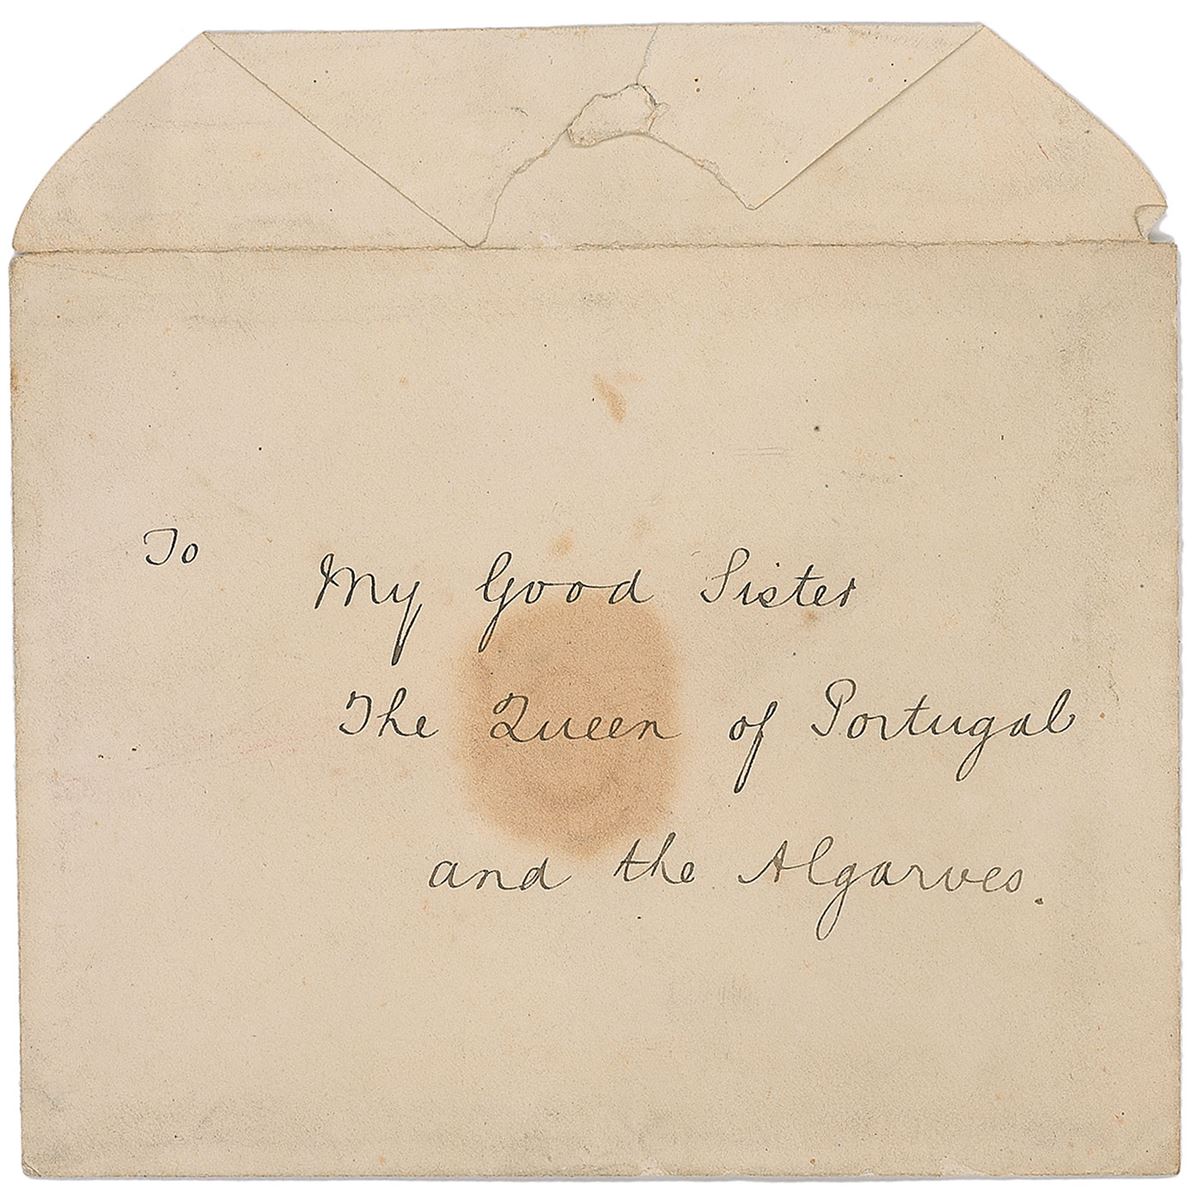 To
My Good Sister
The Queen of Portugal
and the Algarves.